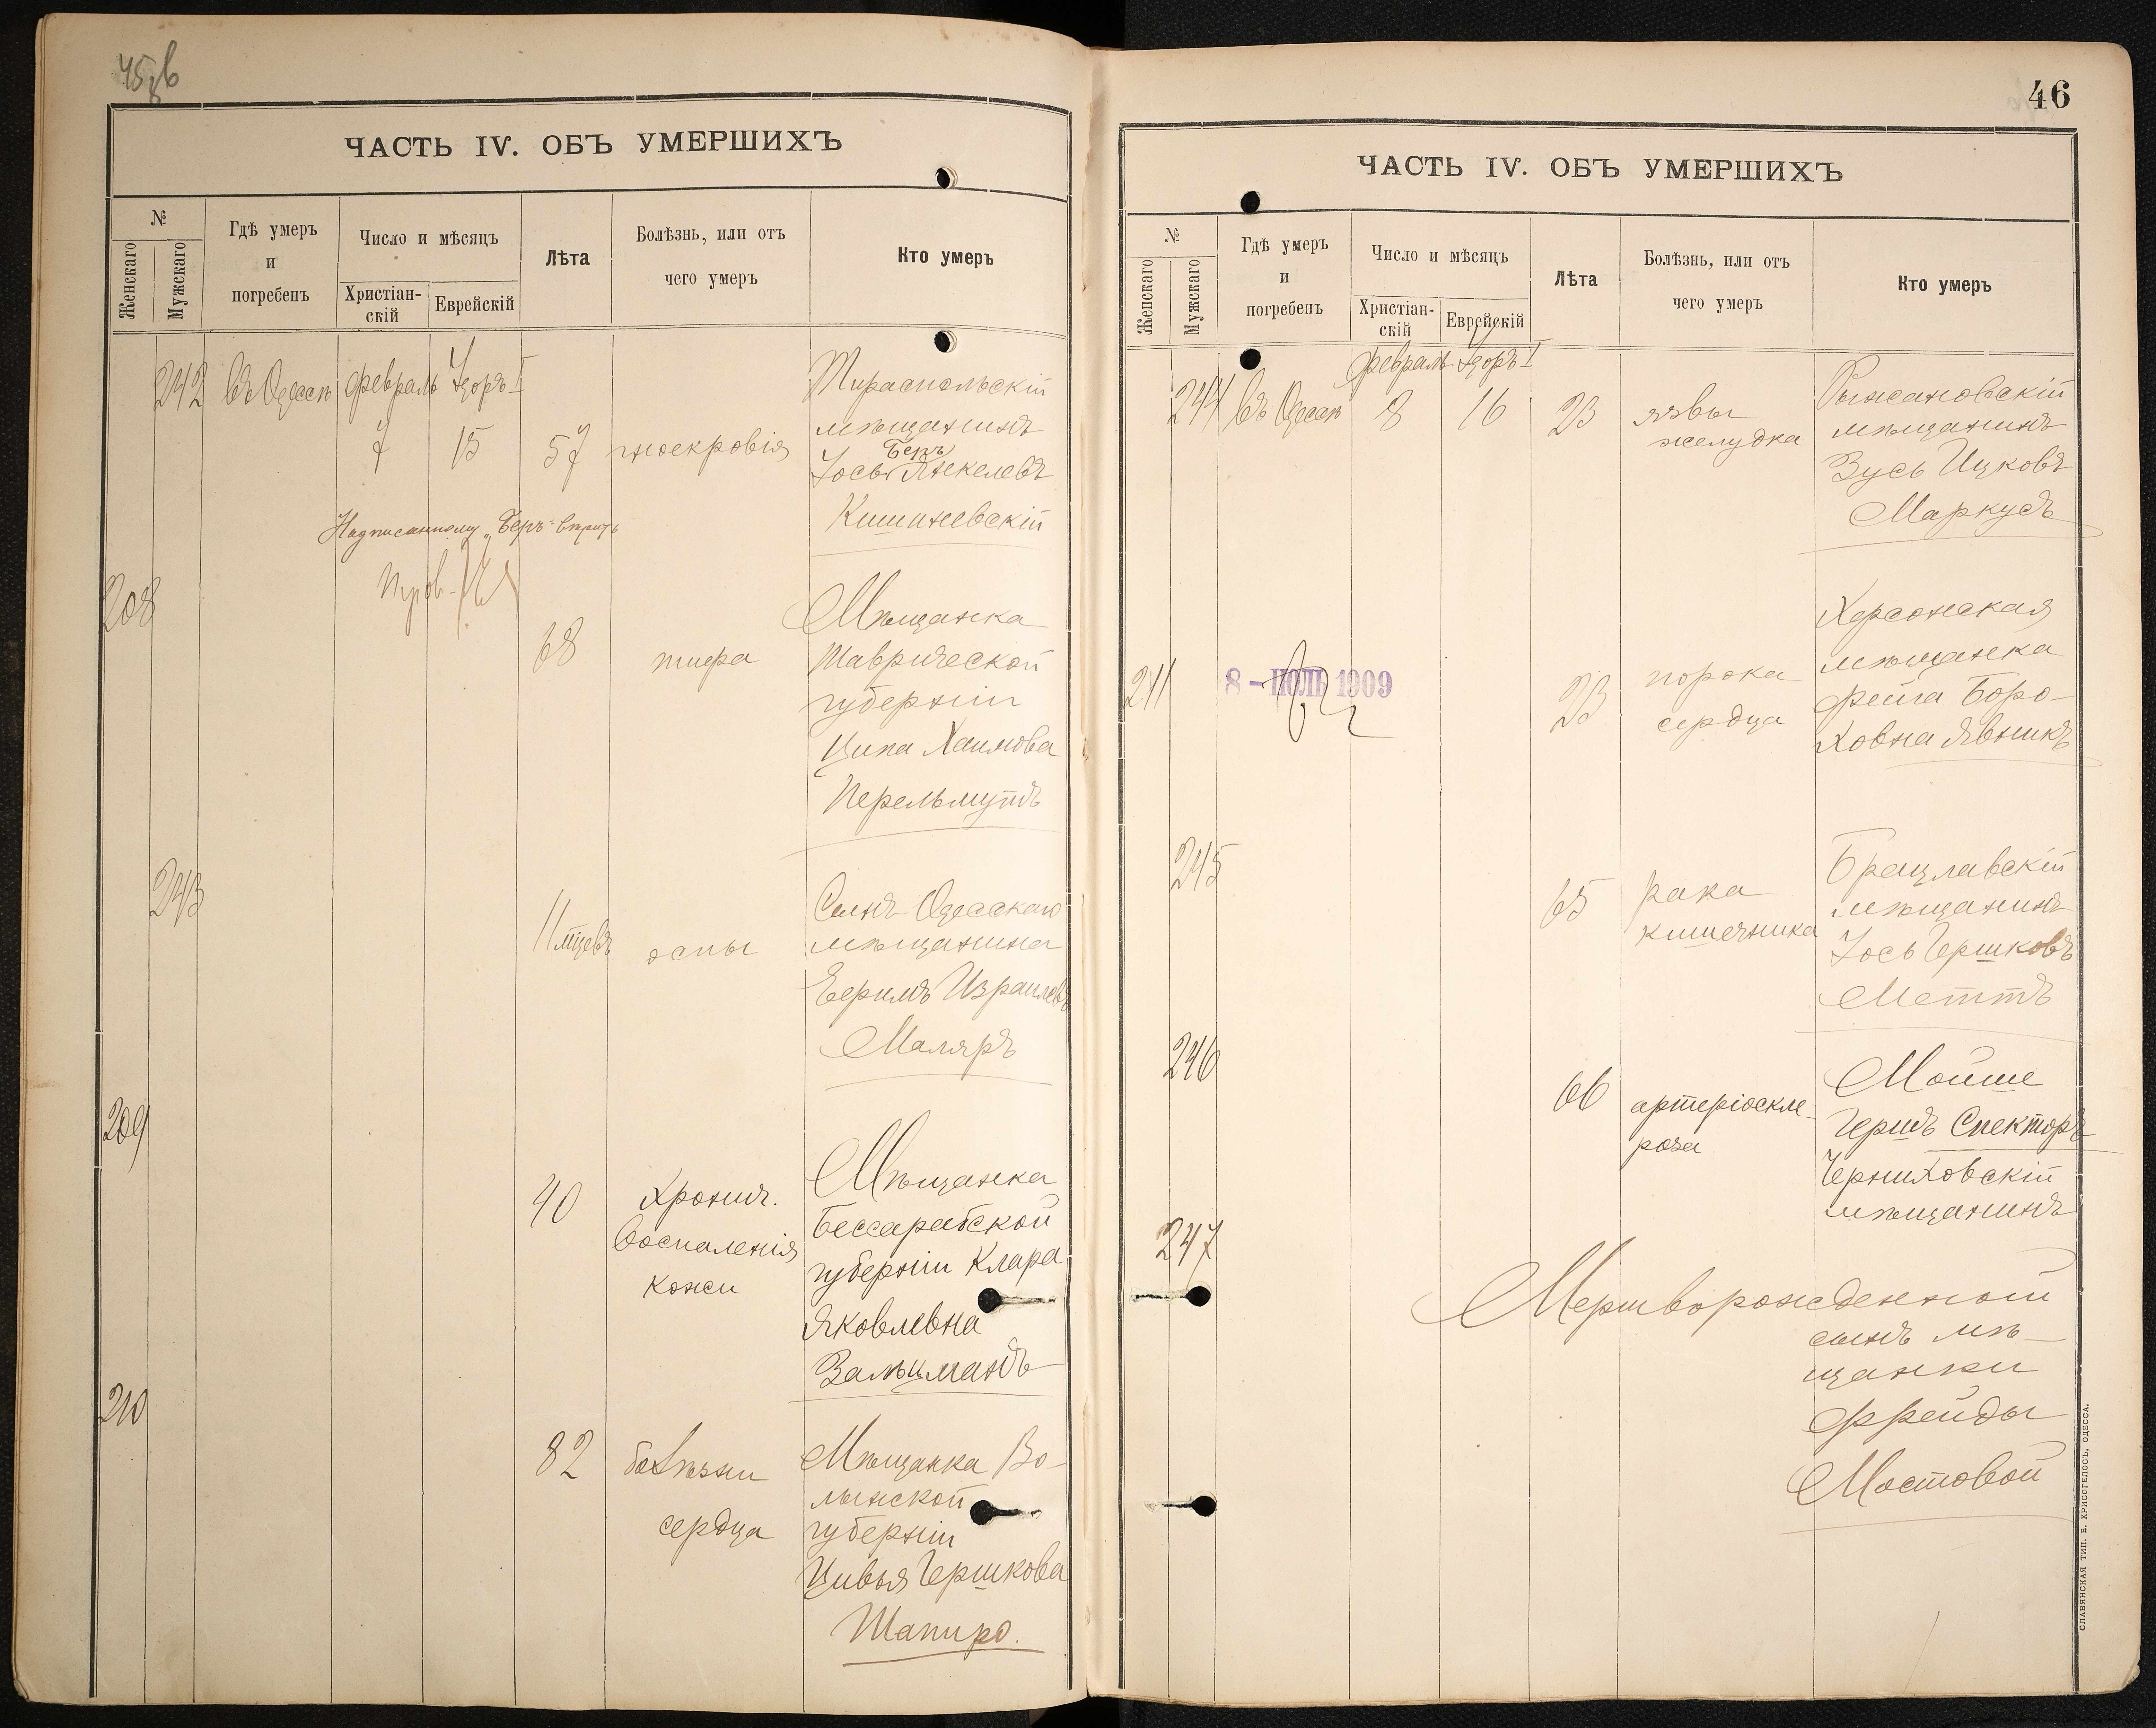 ЧАСТЬ IV. ОБЪ УМЕРШИХЪ
№
Женскаго
Мужскаго
Гдѣ умеръ
и
погребенъ
Число и мѣсяцъ
Христіан-
скій
Еврейскій
Лѣта
Болѣзнь, или отъ
чего умеръ
Кто умеръ
242 въ Одессѣ февраль Адоръ I
7 15 57 гноекровія
Тираспольскій
мѣщанинъ
Беръ
Іось Янкелевъ
Кишиневскій
Надписанному „Беръ“ вѣрить
208
68 тифа
Мѣщанка
Таврической
губерніи
Ципа Хаимова
Перельмутъ
243
11 мцевъ оспы
Сынъ Одесскаго
мѣщанина
Ефримъ Израилевъ
Маляръ
209
40 Хронич.
воспаленія
кожи
Мѣщанка
Бессарабской
губерніи Клара
Яковлевна
Зальцманъ
210
82 болѣзни
сердца
Мѣщанка Во-
лынской
губерніи
Цивья Гершкова
Шапиро.
46
ЧАСТЬ IV. ОБЪ УМЕРШИХЪ
№
Женскаго
Мужскаго
Гдѣ умеръ
и
погребенъ
Число и мѣсяцъ
Христіан-
скій
Еврейскій
Лѣта
Болѣзнь, или отъ
чего умеръ
Кто умеръ
февраль Адоръ I
244 въ Одессѣ 8 16 23 язвы
желудка
Рыжановскій
мѣщанинъ
Зусь Ицковъ
Маркусъ
211
8 - ІЮЛЬ 1909
23 порока
сердца
Херсонская
мѣщанка
Фейга Боро-
ховна Явникъ
245
65 рака
кишечника
Брацлавскій
мѣщанинъ
Іось Гершковъ
Меттъ
246
66 артеріоскле-
роза
Мойше
Гершъ Спекторъ
Черниховскій
мѣщанинъ
247
Мертворожденный
сынъ мѣ-
щанки
Фрейды
Мостовой
СЛАВЯНСКАЯ ТИП. Е. ХРИСОГЕЛОСЪ, ОДЕССА.